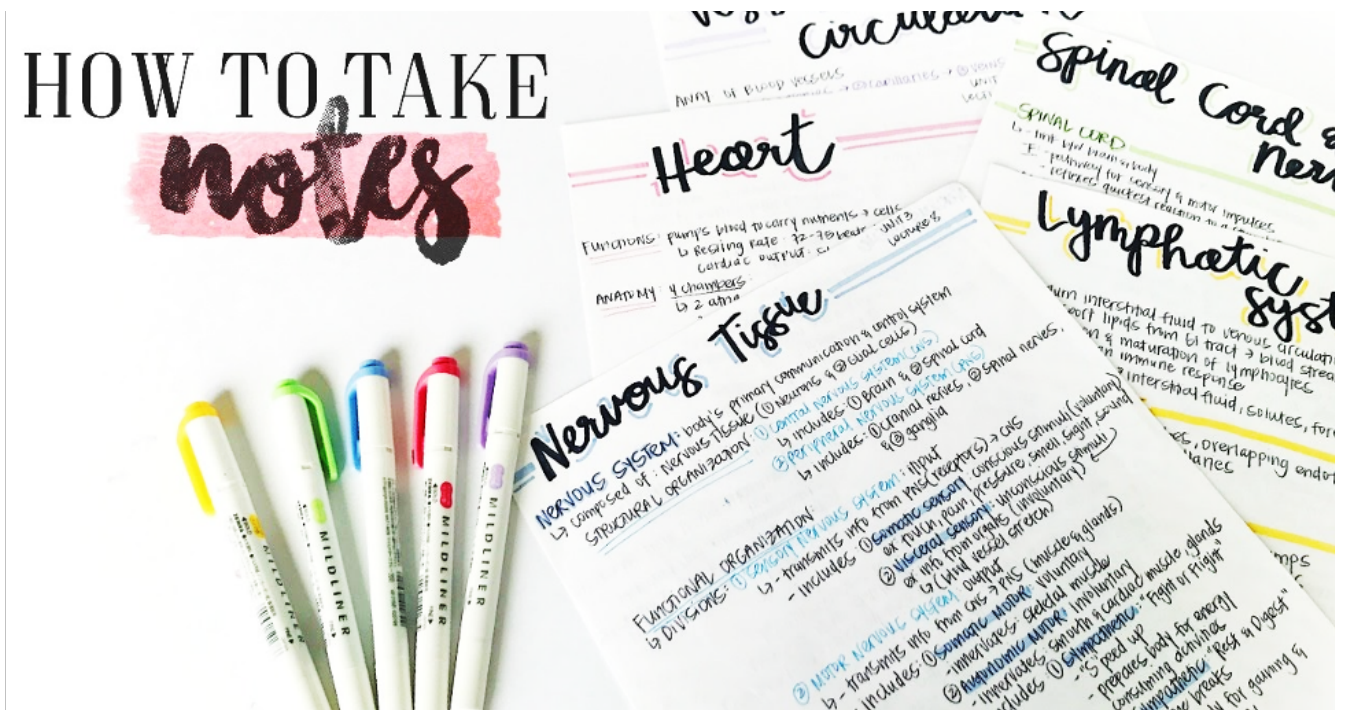 HOW TO TAKE
notes
Circulation
ANAT OF BLOOD VESSELS
Heart
FUNCTIONS: pumps blood to carry nutrients → cells
↳ Resting Rate: 72-75 beats
cardiac output:
UNIT 3
LECTURE 8
ANATOMY: 4 chambers:
↳ 2 atria
Spinal Cord &
SPINAL CORD
↳ - link b/w brain & body
- pathway for sensory & motor impulses
- relieves quickest reaction to a
Lymphatic
interstitial fluid to venous
lipids from GI tract → blood
& maturation of lymphocytes
immune response
interstitial fluid, solutes,
overlapping
Nervous Tissue
NERVOUS SYSTEM: body's primary communication & control system
↳ composed of: Nervous Tissue (① Neurons & ② Glial cells)
STRUCTURAL ORGANIZATION: ① central nervous system (CNS)
↳ includes: ① Brain & ② spinal cord
② peripheral nervous system (PNS)
↳ includes: ① cranial nerves, ② spinal nerves,
& ③ ganglia
FUNCTIONAL ORGANIZATION:
↳ DIVISIONS: ① sensory nervous system: input
↳ - transmits info from PNS (receptors) → CNS
- includes: ① somatic sensory: conscious stimuli (voluntary)
ex touch, pain, pressure, smell, sight, sound
② visceral sensory: unconscious stimuli
ex info from organs (involuntary)
↳ (blood vessel stretch)
② MOTOR NERVOUS SYSTEM: output
↳ - transmits info from CNS → PNS (muscle & glands)
- includes: ① somatic motor: voluntary
- innervates: skeletal muscle
② Autonomic MOTOR: involuntary
- innervates: smooth & cardiac muscle, glands
① sympathetic: "Fight or Flight"
- "speed up"
- prepares body for energy
consuming activities
"Rest & Digest"
breaks
for gaining &
MILDLINER
MILDLINER
MILDLINER
MILDLINER
MILDLINER